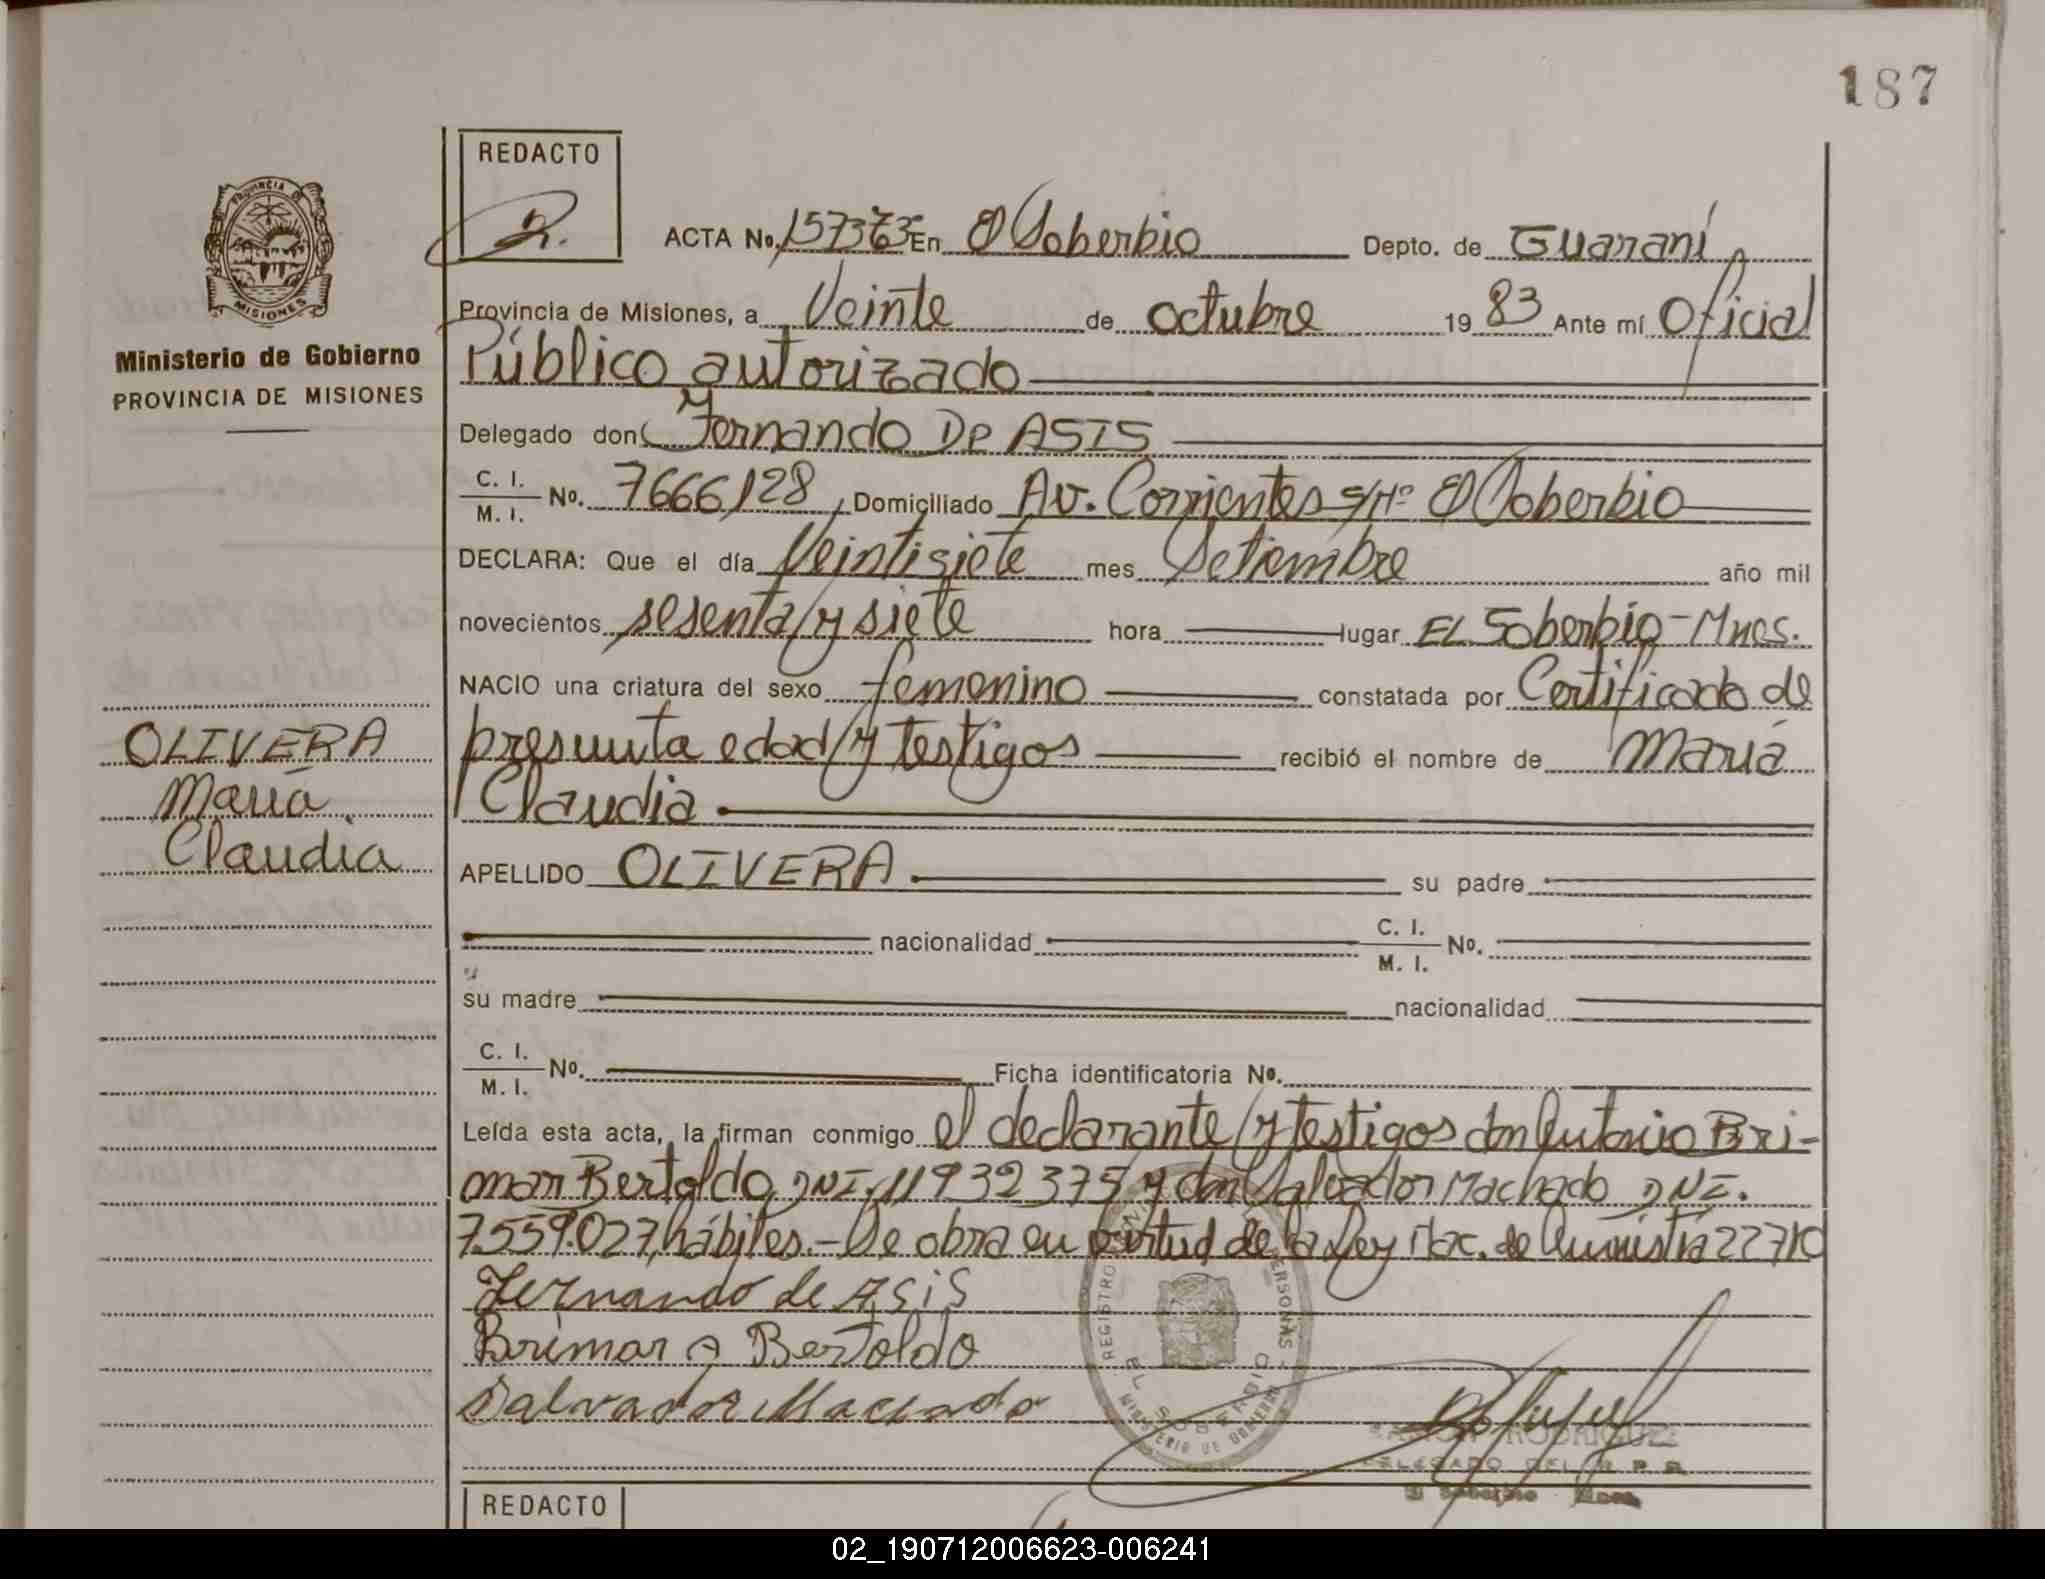 187
REDACTO
R.
ACTA No. En El Soberbio Depto. de Guaraní
Provincia de Misiones, a Veinte de octubre 19 83 Ante mí Oficial
Público autorizado
Delegado don Fernando De ASIS
C. I. M. I. No. 7666128, Domiciliado Av. Corrientes s/Nº El Soberbio
DECLARA: Que el día Veintisiete mes Setiembre año mil
novecientos sesenta y siete hora lugar EL Soberbio - Mnes.
NACIO una criatura del sexo femenino constatada por Certificado de
presunta edad y testigos recibió el nombre de María
Claudia
APELLIDO OLIVERA su padre
nacionalidad C. I. M. I. No.
su madre nacionalidad
C. I. M. I. No. Ficha identificatoria No.
Leída esta acta, la firman conmigo el declarante y testigos don Antonio Bri-
mar Bertoldo DNI. 11932375 y don Salvador Machado DNI.
7.559.027, hábiles.- Se obra en virtud de la Ley Nac. de Amnistía 22710
Fernando de ASiS
Brimar A Bertoldo
Salvador Machado
REGISTRO PERSONAS
EL SOBERBIO
MINISTERIO DE GOBIERNO
RODRIGUEZ
DELEGADO DEL R P P
El Soberbio Mnes
REDACTO
PROVINCIA DE
MISIONES
Ministerio de Gobierno
PROVINCIA DE MISIONES
OLIVERA
María
Claudia
02_190712006623-006241